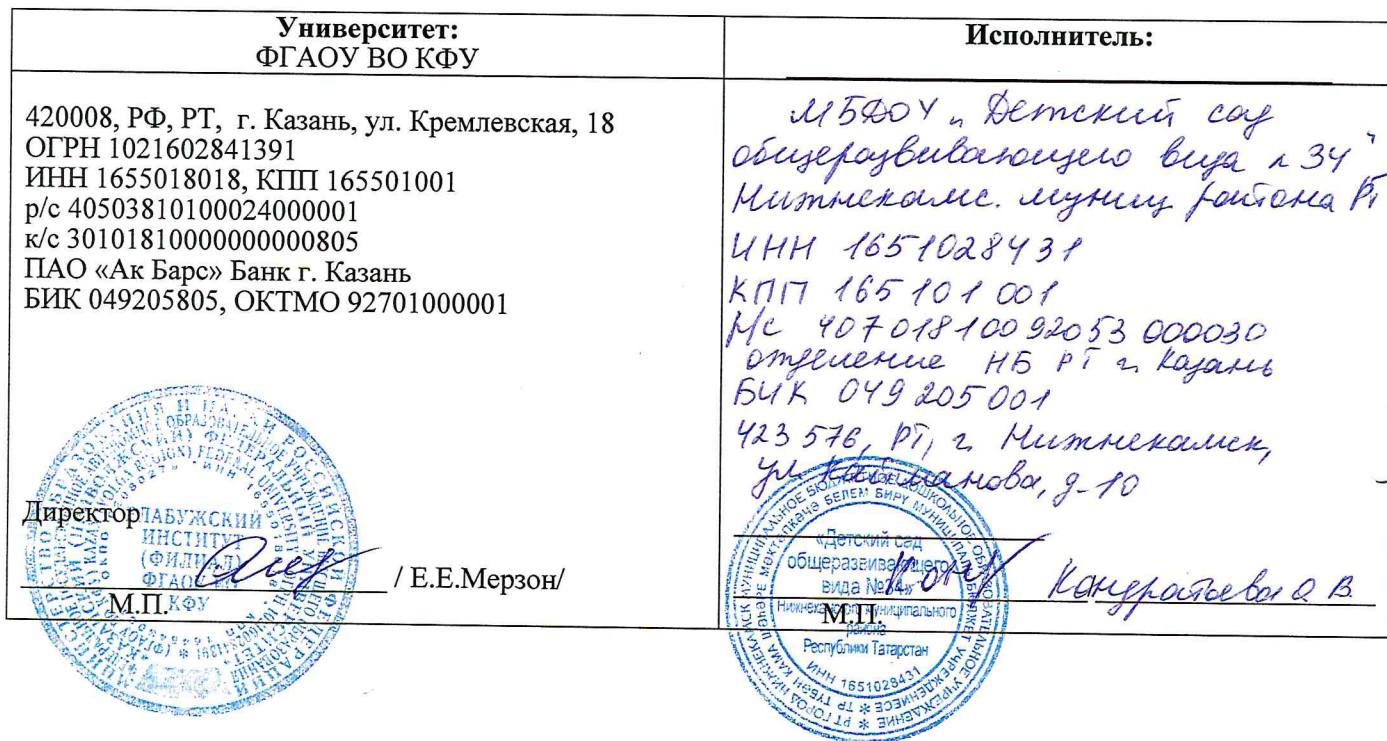 Университет:
ФГАОУ ВО КФУ
420008, РФ, РТ, г. Казань, ул. Кремлевская, 18
ОГРН 1021602841391
ИНН 1655018018, КПП 165501001
р/с 40503810100024000001
к/с 30101810000000000805
ПАО «Ак Барс» Банк г. Казань
БИК 049205805, ОКТМО 92701000001
Директор
/ Е.Е.Мерзон/
М.П.
ЕЛАБУЖСКИЙ
ИНСТИТУТ
(ФИЛИАЛ)
ФГАОУ ВО
КФУ
Исполнитель:
МБДОУ „Детский сад
общеразвивающего вида № 34"
Нижнекамс. муниц района РТ
ИНН 1651028431
КПП 165101001
р/с 40701810092053000030
отделение НБ РТ г. Казань
БИК 049205001
423576, РТ, г. Нижнекамск,
ул. д-10
Кондратьева О. В.
М.П.
«Детский сад
общеразвивающего
вида №34»
Нижнекамского муниципального
района
Республики Татарстан
ИНН 1651028431